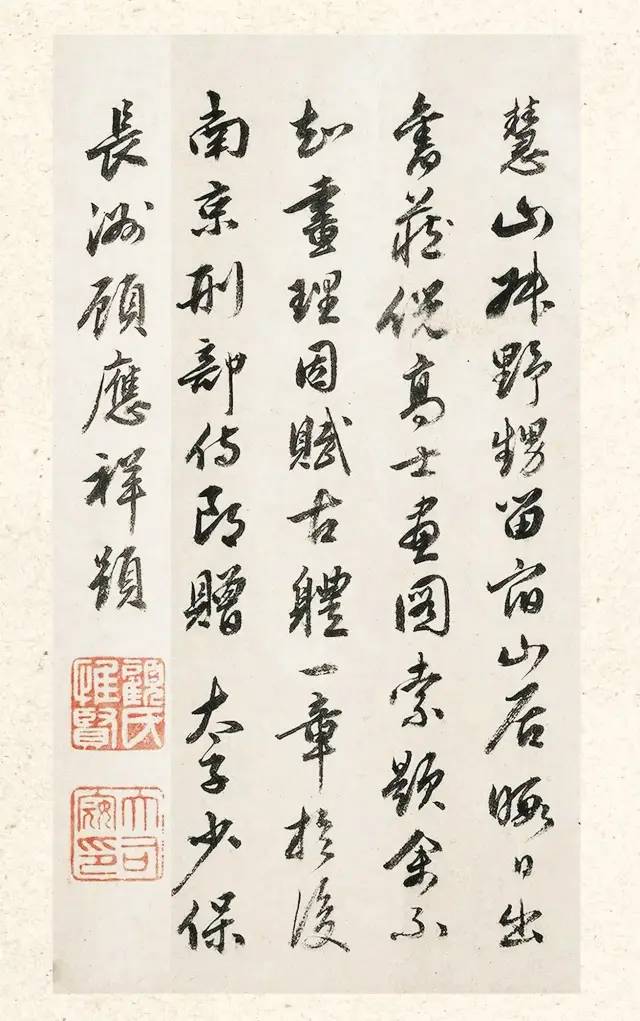 慧山野甥留宿山居暇日出
舊藏倪高士画圖索題余不
知畫理因賦古體一章於後
南京刑部侍郎贈 太子少保
長洲顧應祥題
顧氏惟賢
大司寇印